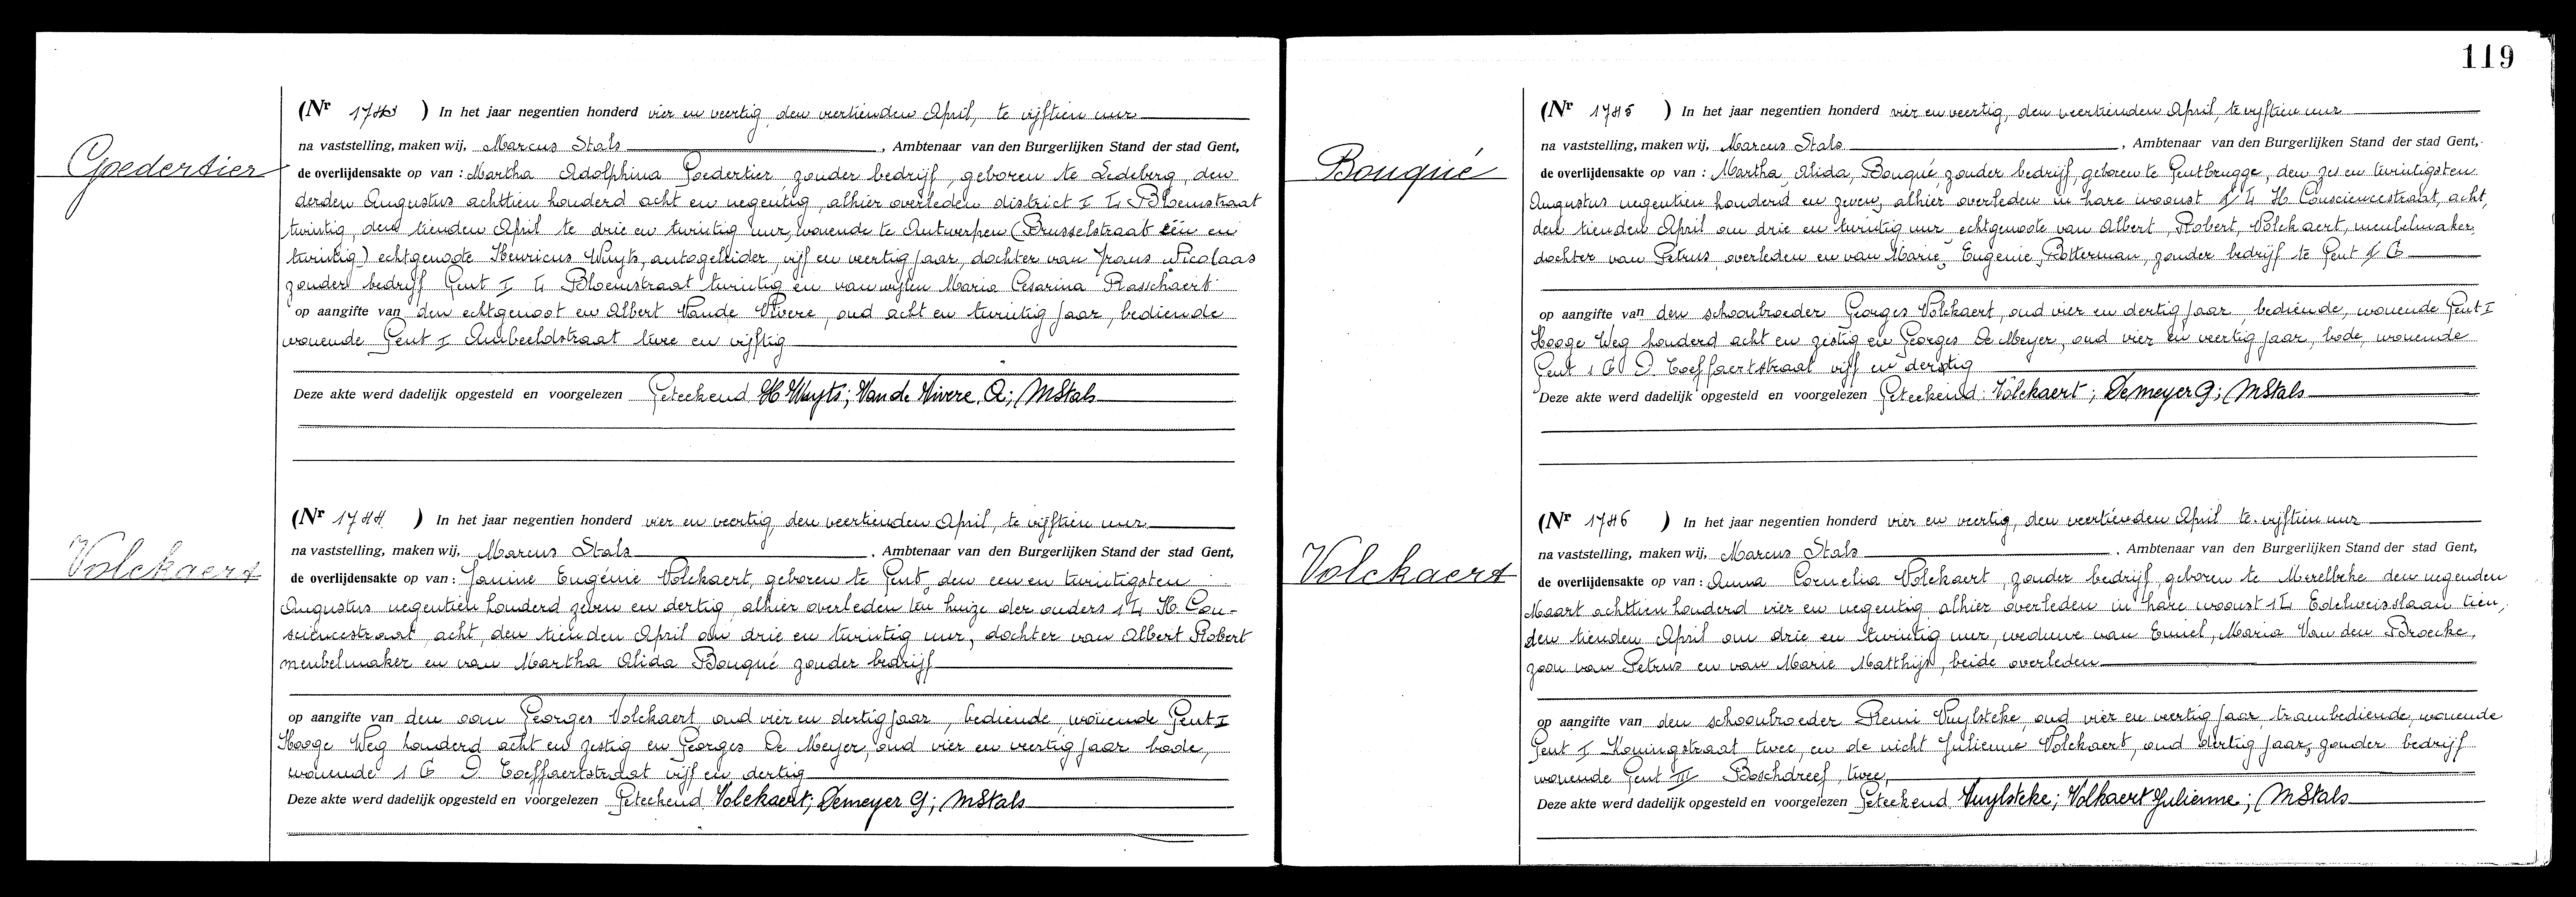 119
Goedertier
(Nr 1743 ) In het jaar negentien honderd vier en veertig, den veertienden April, te vijftien uur
na vaststelling, maken wij, Marcus Stals , Ambtenaar van den Burgerlijken Stand der stad Gent,
de overlijdensakte op van : Martha Adolphina Goedertier zonder bedrijf, geboren te Ledeberg, den
derden Augustus achttien honderd acht en negentig, alhier overleden district I L Bloemstraat
twintig, den tienden April te drie en twintig uur, wonende te Antwerpen (Brusselstraat één en
twintig) echtgenoote Henricus Wuyts, autogeleider, vijf en veertig jaar, dochter van Frans Nicolaas
zonder bedrijf Gent I L Bloemstraat twintig en van wijlen Maria Cesarina Rasschaert
op aangifte van den echtgenoot en Albert Vande Vivere, oud acht en twintig jaar, bediende
wonende Gent I Aambeeldstraat twee en vijftig
Deze akte werd dadelijk opgesteld en voorgelezen Geteekend H Wuyts; Van de Vivere, A; MStals
Volckaert
(Nr 1744 ) In het jaar negentien honderd vier en veertig, den veertienden April, te vijftien uur
na vaststelling, maken wij, Marcus Stals , Ambtenaar van den Burgerlijken Stand der stad Gent,
de overlijdensakte op van : Janine Eugénie Volckaert, geboren te Gent, den een en twintigsten
Augustus negentien honderd zeven en dertig, alhier overleden ten huize der ouders 1 L H. Con-
sciencestraat, acht, den tienden April om drie en twintig uur, dochter van Albert Robert
meubelmaker en van Martha Alida Bouqué zonder bedrijf
op aangifte van den oom Georges Volckaert oud vier en dertig jaar, bediende, wonende Gent I
Hooge Weg honderd acht en zestig en Georges De Meyer, oud vier en veertig jaar bode,
wonende 1 G D. Toeffaertstraat vijf en dertig
Deze akte werd dadelijk opgesteld en voorgelezen Geteekend Volckaert; Demeyer G; MStals
Bouqué
(Nr 1745 ) In het jaar negentien honderd vier en veertig, den veertienden April, te vijftien uur
na vaststelling, maken wij, Marcus Stals , Ambtenaar van den Burgerlijken Stand der stad Gent,
de overlijdensakte op van : Martha, Alida, Bouqué, zonder bedrijf, geboren te Gentbrugge, den zes en twintigsten
Augustus negentien honderd en zeven, alhier overleden in hare woonst 1 L H Consciencestraat, acht,
den tienden April om drie en twintig uur echtgenoote van Albert, Robert, Volckaert, meubelmaker,
dochter van Petrus, overleden en van Marie, Eugenie, Rotterman, zonder bedrijf te Gent 1 G
op aangifte van den schoonbroeder Georges Volckaert, oud vier en dertig jaar, bediende, wonende Gent I
Hooge Weg honderd acht en zestig en Georges De Meyer, oud vier en veertig jaar, bode, wonende
Gent 1 G D. Toeffaertstraat vijf en dertig
Deze akte werd dadelijk opgesteld en voorgelezen Geteekend : Volckaert; Demeyer G; MStals
Volckaert
(Nr 1746 ) In het jaar negentien honderd vier en veertig, den veertienden April te vijftien uur
na vaststelling, maken wij, Marcus Stals , Ambtenaar van den Burgerlijken Stand der stad Gent,
de overlijdensakte op van : Anna Cornelia Volckaert, zonder bedrijf, geboren te Merelbeke den negenden
Maart achttien honderd vier en negentig alhier overleden in hare woonst 1 L Edelweisslaan tien,
den tienden April om drie en twintig uur, weduwe van Emiel, Maria Van den Broecke,
zoon van Petrus en van Marie Matthijs, beide overleden
op aangifte van den schoonbroeder Remi Vuylsteke, oud vier en veertig jaar trambediende, wonende
Gent I Koningstraat twee, en de nicht Julienne Volckaert, oud dertig jaar, zonder bedrijf
wonende Gent III Boschdreef, twee,
Deze akte werd dadelijk opgesteld en voorgelezen Geteekend Vuylsteke; Volkaert Julienne; MStals